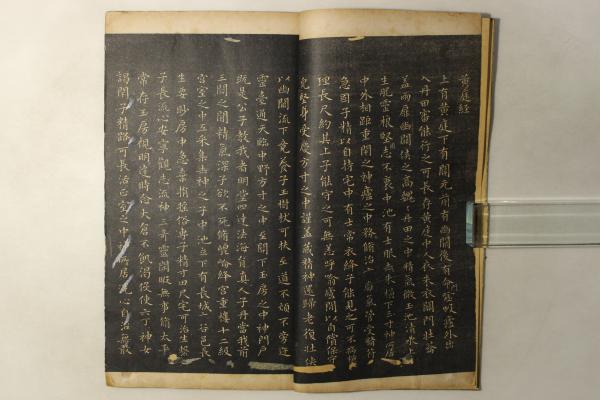 黃庭經
上有黃庭下有關元前有幽闕後有命門噓吸廬外出
入丹田審能行之可長存黃庭中人衣朱衣關門壯籥
蓋兩扉幽闕俠之高魏魏丹田之中精氣微玉池清水上
生肥靈根堅志不衰中池有士服赤朱橫下三寸神所居
中外相距重閉之神廬之中務脩治玄癰氣管受精符
急固子精以自持宅中有士常衣絳子能見之可不病橫
理長尺約其上子能守之可無恙呼噏廬間以自償保守
完堅身受慶方寸之中謹蓋藏精神還歸老復壯俠
以幽闕流下竟養子玉樹杖可扶至道不煩不旁迕
靈臺通天臨中野方寸之中至關下玉房之中神門戶
既是公子教我者明堂四達法海員真人子丹當我前
三關之間精氣深子欲不死脩崑崙絳宮重樓十二級
宮室之中五采集赤神之子中池立下有長城玄谷邑長
生要眇房中急棄捐搖俗專子精寸田尺宅可治生繫
子長流心安寧觀志流神三奇靈閒暇無事脩太平
常存玉房視明達時念大倉不飢渴役使六丁神女
謁閉子精路可長活正室之中神所居洗心自治無敢